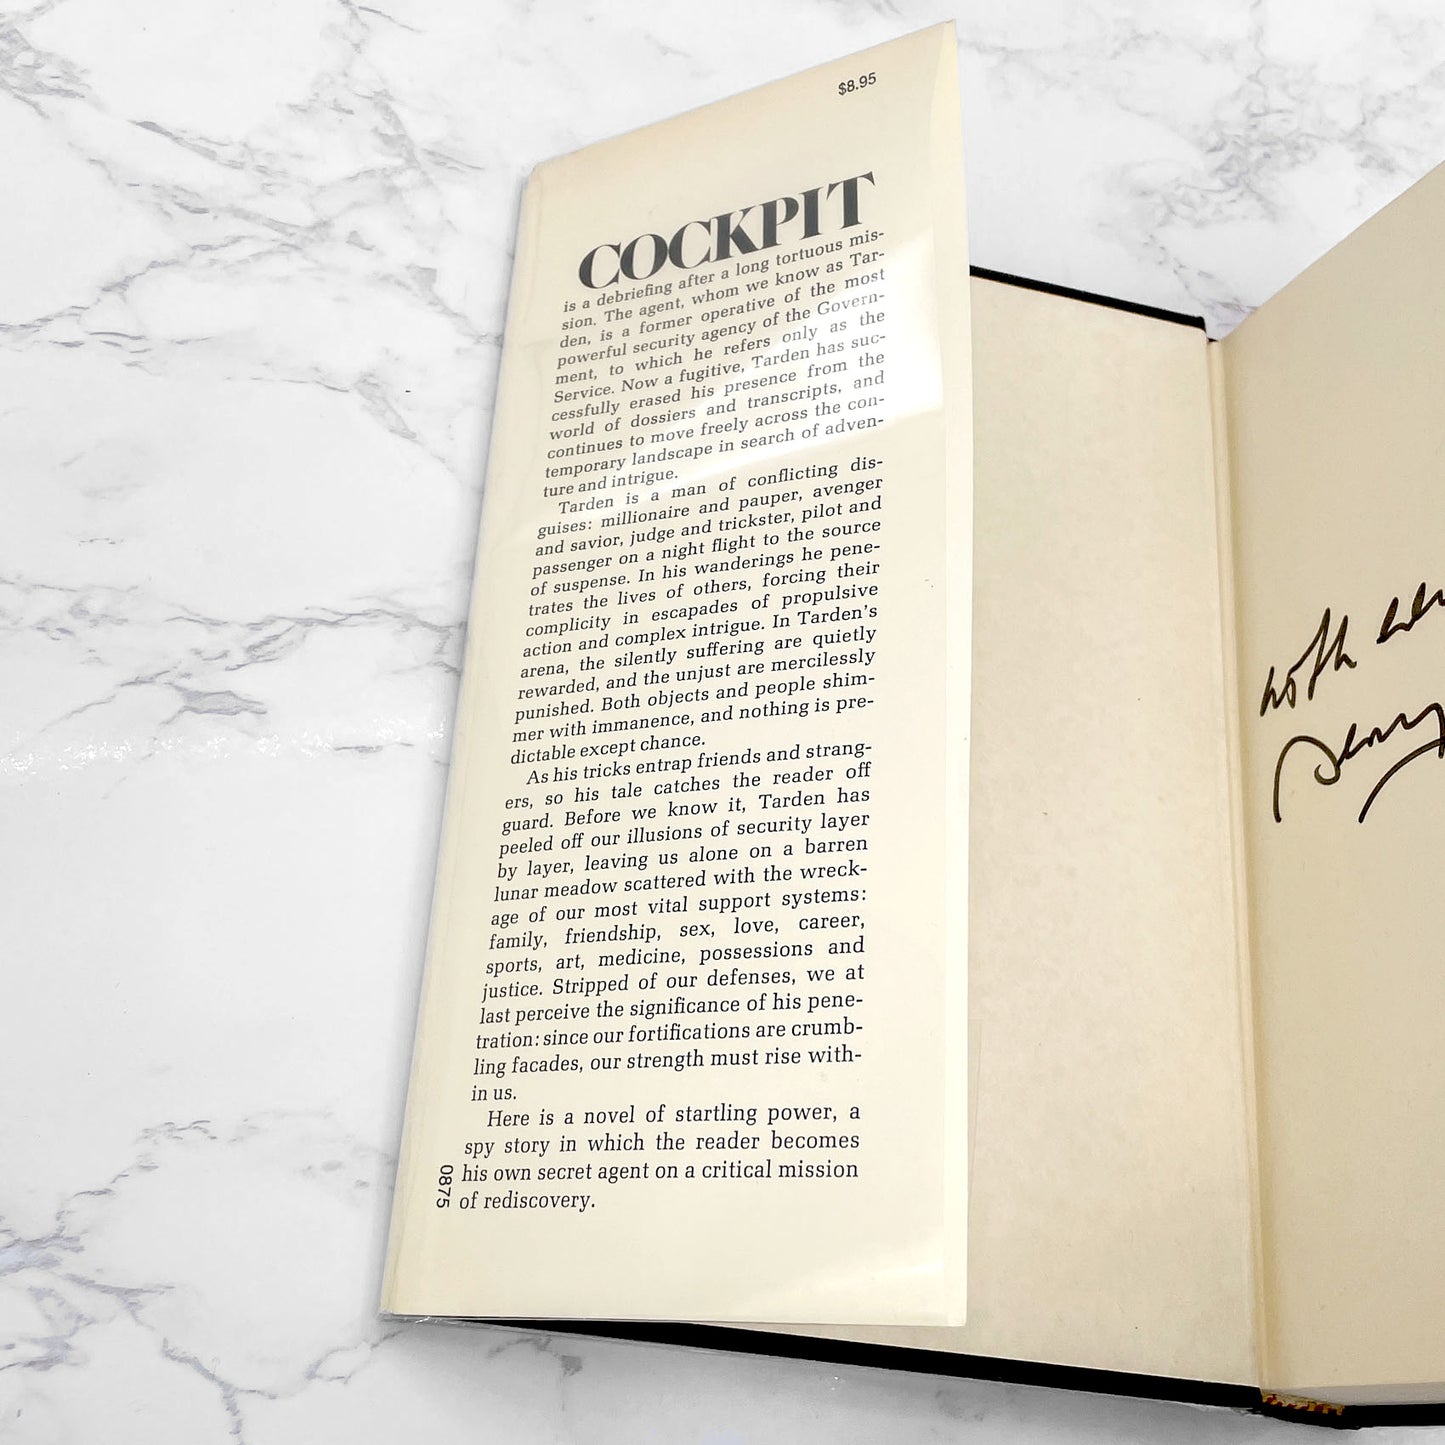 $8.95
COCKPIT
is a debriefing after a long tortuous mis-
sion. The agent, whom we know as Tar-
den, is a former operative of the most
powerful security agency of the Govern-
ment, to which he refers only as the
Service. Now a fugitive, Tarden has suc-
cessfully erased his presence from the
world of dossiers and transcripts, and
continues to move freely across the con-
temporary landscape in search of adven-
ture and intrigue.
Tarden is a man of conflicting dis-
guises: millionaire and pauper, avenger
and savior, judge and trickster, pilot and
passenger on a night flight to the source
of suspense. In his wanderings he pene-
trates the lives of others, forcing their
complicity in escapades of propulsive
action and complex intrigue. In Tarden's
arena, the silently suffering are quietly
rewarded, and the unjust are mercilessly
punished. Both objects and people shim-
mer with immanence, and nothing is pre-
dictable except chance.
As his tricks entrap friends and strang-
ers, so his tale catches the reader off
guard. Before we know it, Tarden has
peeled off our illusions of security layer
by layer, leaving us alone on a barren
lunar meadow scattered with the wreck-
age of our most vital support systems:
family, friendship, sex, love, career,
sports, art, medicine, possessions and
justice. Stripped of our defenses, we at
last perceive the significance of his pene-
tration: since our fortifications are crumb-
ling facades, our strength must rise with-
in us.
Here is a novel of startling power, a
spy story in which the reader becomes
his own secret agent on a critical mission
of rediscovery.
0875